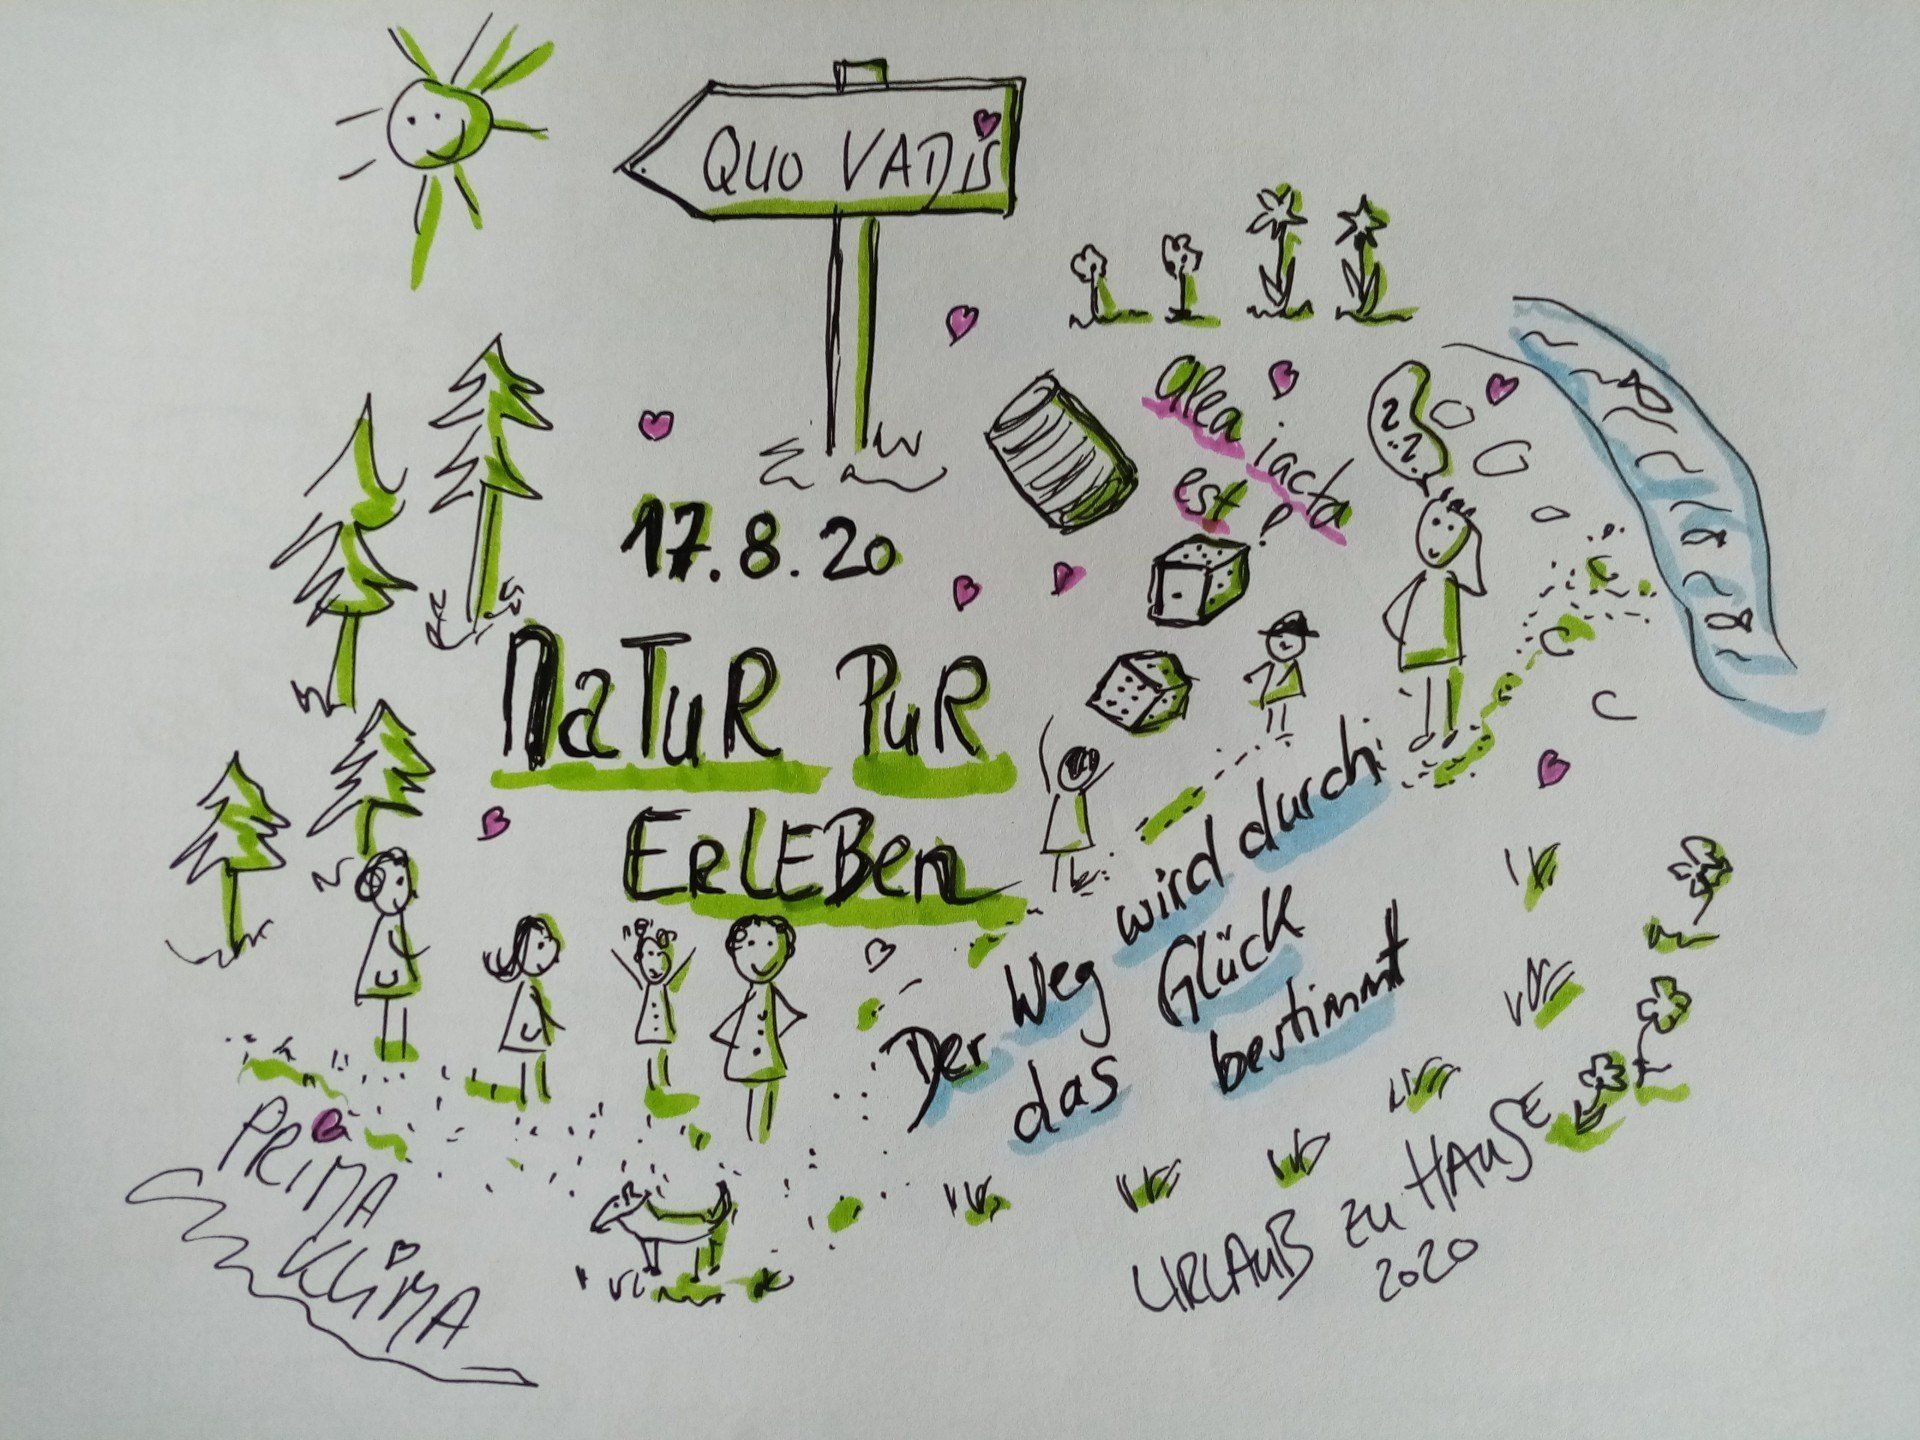 QUO VADIS
alea iacta
est?
17.8.20
NaTuR PuR
ErLEBen
Der Weg wird durch
das Glück
bestimmt
PRIMA
KLIMA
URLAUB ZU HAUSE
2020